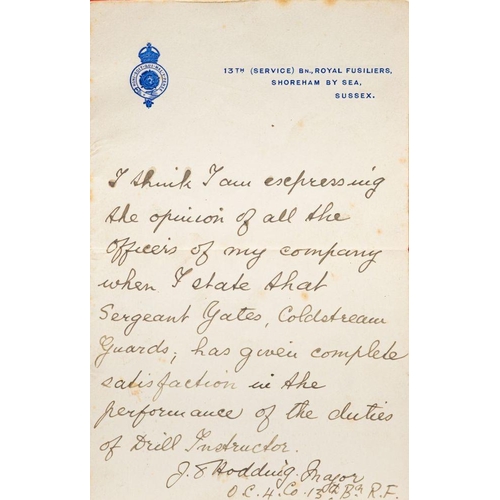 13TH (SERVICE) BN., ROYAL FUSILIERS,
SHOREHAM BY SEA,
SUSSEX.
I think I am expressing
the opinion of all the
Officers of my company
when I state that
Sergeant Yates, Coldstream
Guards, has given complete
satisfaction in the
performance of the duties
of Drill Instructor.
Hodding. Major
O.C. 4. Co. 13th Bn R.F.